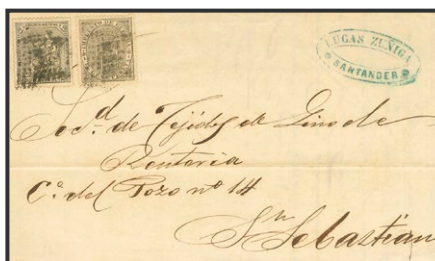 LUCAS ZUÑIGA
SANTANDER
Soc.d de Tejidos de Lino de
Renteria
C.e del Pozo nº 14
Sn Sebastian